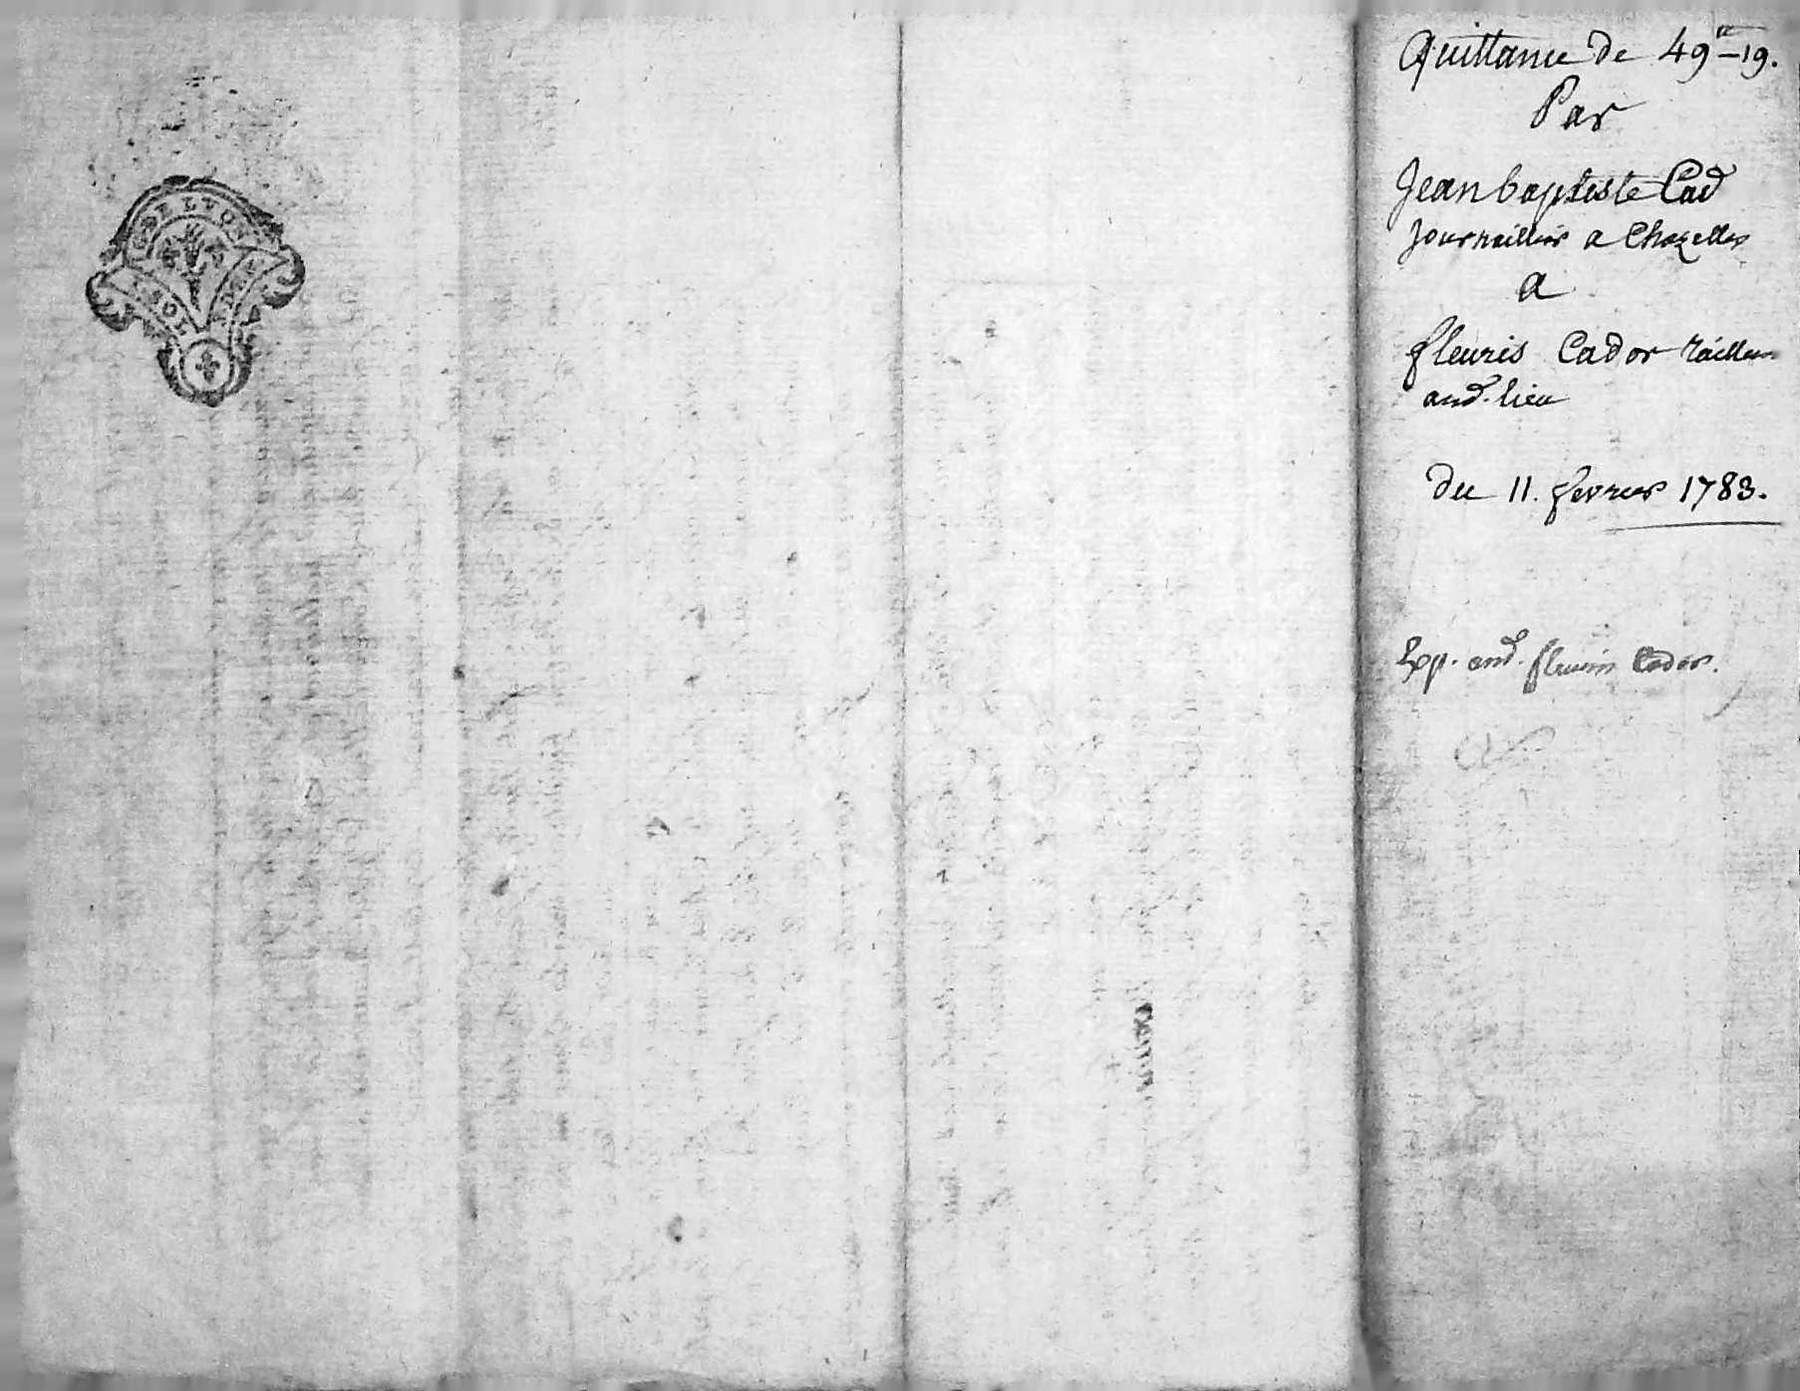 G. DE LYON
SOL
Quittance de 49tt-19.
Par
Jean baptiste Cad
Journaillier a Chazelles
a
fleuris Cador tailleur
aud. lieu
du 11. fevrier 1783.
Exp. aud. fleuris Cador.